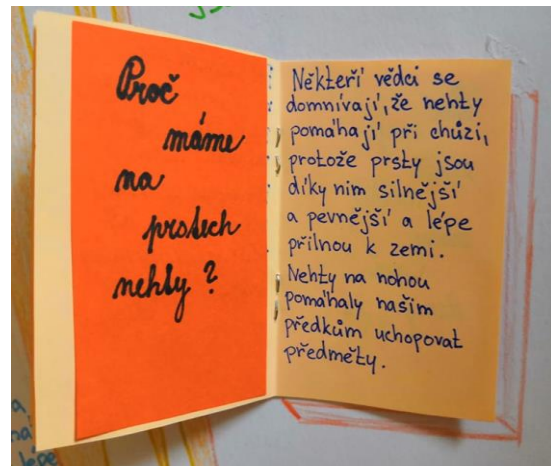 Proč
máme
na
prstech
nehty?
Někteří vědci se
domnívají, že nehty
pomáhají při chůzi,
protože prsty jsou
díky nim silnější
a pevnější a lépe
přilnou k zemi.
Nehty na nohou
pomáhaly našim
předkům uchopovat
předměty.
lépe